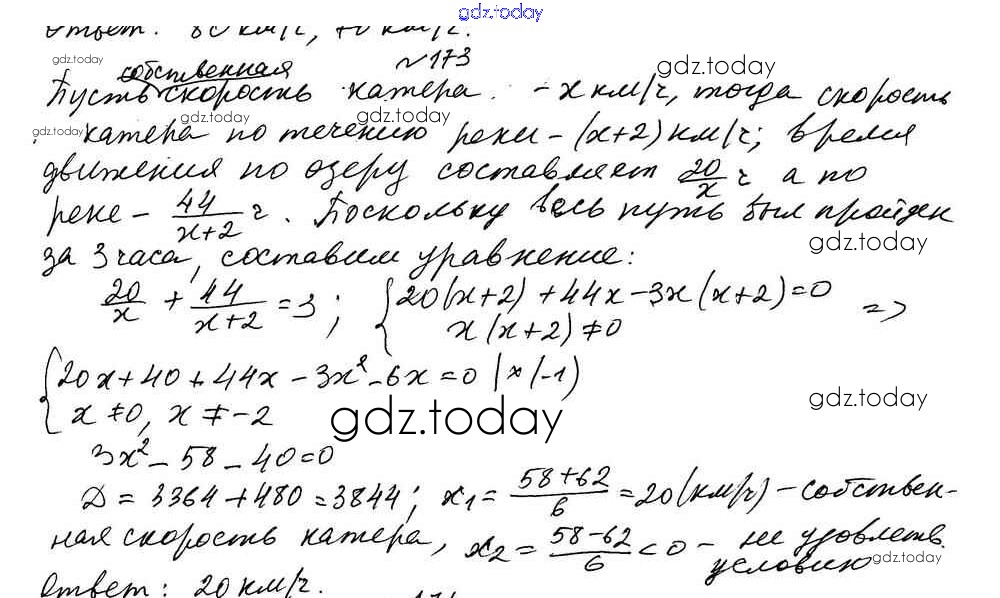 gdz.today
Ответ: 80 км/ч, 70 км/ч.
gdz.today
№173
gdz.today
собственная
Пусть скорость катера - x км/ч, тогда скорость
gdz.today gdz.today
катера по течению реки - (x+2) км/ч; время
движения по озеру составляет 20/x ч а по
реке - 44/(x+2) ч. Поскольку весь путь был пройден
gdz.today
за 3 часа, составим уравнение:
20/x + 44/(x+2) = 3; { 20(x+2) + 44x - 3x(x+2) = 0
x(x+2) ≠ 0 =>
{ 20x + 40 + 44x - 3x² - 6x = 0 |×(-1)
x ≠ 0, x ≠ -2
gdz.today
gdz.today
3x² - 58 - 40 = 0
D = 3364 + 480 = 3844; x₁ = (58+62)/6 = 20 (км/ч) - собствен-
ная скорость катера, x₂ = (58-62)/6 < 0 - не удовлетв.
условию
gdz.today
Ответ: 20 км/ч.